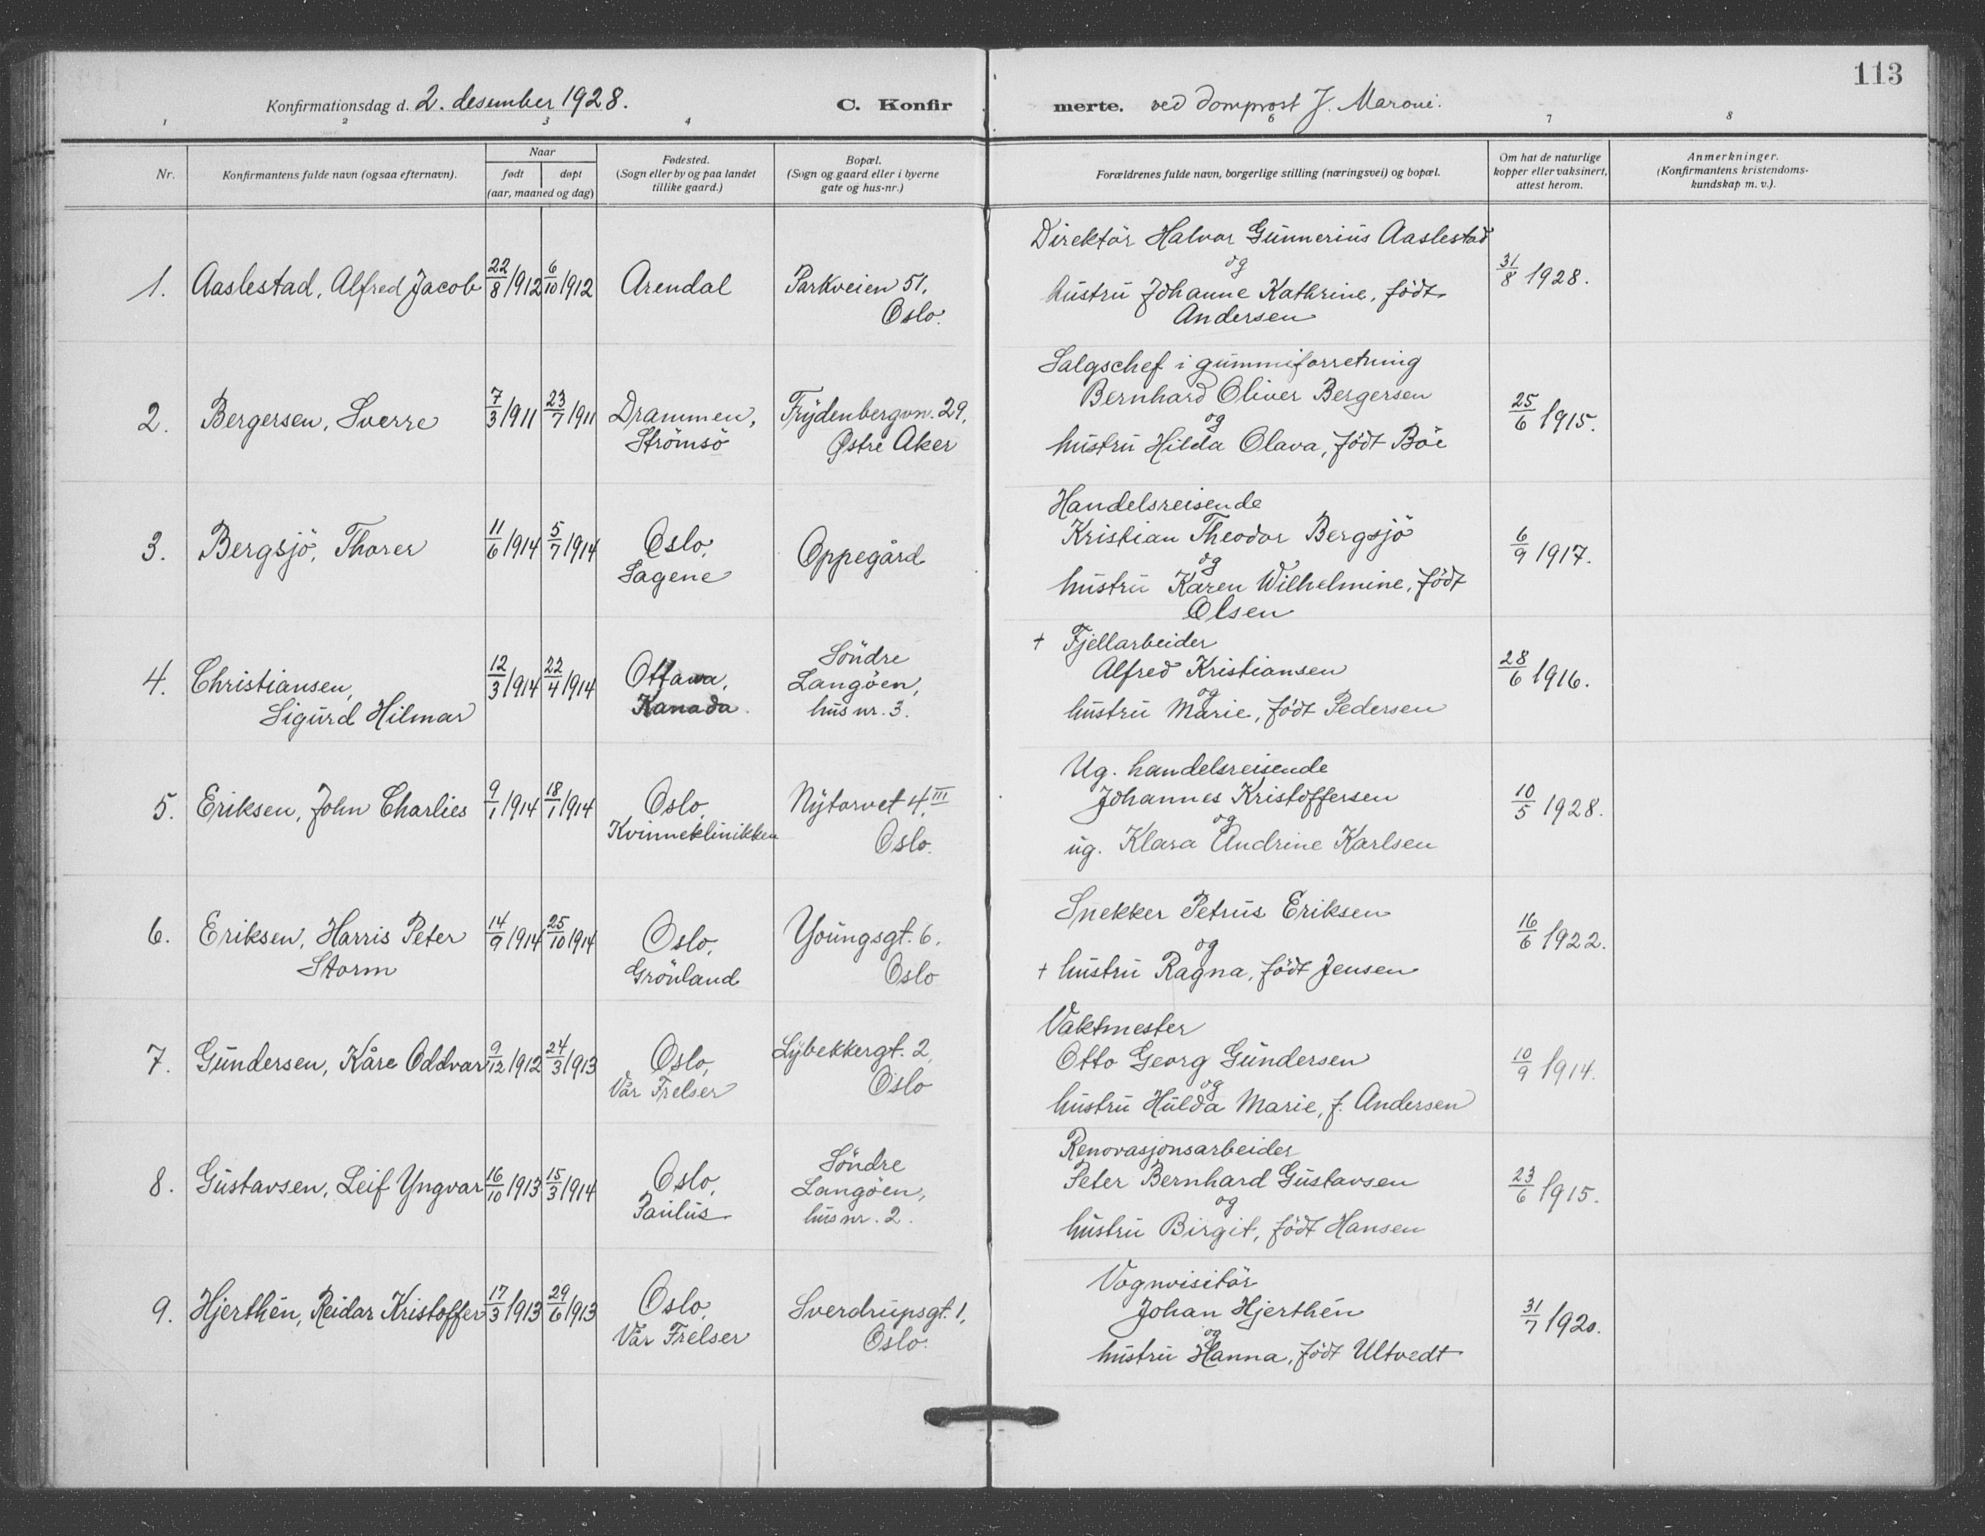 113
Konfirmationsdag d. 2. desember 1928.
C. Konfir
merte. ved domprost J. Maroni.
1 2 3 4 6 7 8
Nr.
Konfirmantens fulde navn (ogsaa efternavn).
Naar
født
døpt
(aar, maaned og dag)
Fødested.
(Sogn eller by og paa landet
tillike gaard.)
Bopæl.
(Sogn og gaard eller i byerne
gate og hus-nr.)
Forældrenes fulde navn, borgerlige stilling (næringsvei) og bopæl.
Om hat de naturlige
kopper eller vaksinert,
attest herom.
Anmerkninger.
(Konfirmantens kristendoms-
kundskap m. v.).
1. Aaslestad, Alfred Jacob
22/8 1912
6/10 1912
Arendal
Parkveien 51,
Oslo.
Direktör Halvor Gunnerius Aaslestad
og
hustru Johanne Kathrine, födt
Andersen
31/8 1928.
2. Bergersen, Sverre
7/3 1911
23/7 1911
Drammen,
Strömsö
Frydenbergvn. 29,
Østre Aker
Salgschef i gummiforretning
Bernhard Oliver Bergersen
og
hustru Hilda Olava, födt Böe
25/6 1915.
3. Bergsjö, Thorer
11/6 1914
5/7 1914
Oslo,
Sagene
Oppegård
Handelsreisende
Kristian Theodor Bergsjö
og
hustru Karen Wilhelmine, födt
Olsen
6/9 1917.
4. Christiansen,
Sigurd Hilmar
12/3 1914
22/4 1914
Ottawa,
Kanada.
Söndre
Langöen,
hus nr. 3.
+ Fjellarbeider
Alfred Kristiansen
og
hustru Marie, födt Pedersen
28/6 1916.
5. Eriksen, John Charlies
9/1 1914
18/1 1914
Oslo,
Kvinneklinikken
Nytorvet 4, III
Oslo.
Ug. handelsreisende
Johannes Kristoffersen
og
ug. Klara Andrine Karlsen
10/5 1928.
6. Eriksen, Harris Peter
Storm
14/9 1914
25/10 1914
Oslo,
Grönland
Youngsgt. 6,
Oslo
Snekker Petrus Eriksen
og
+ hustru Ragna, födt Jensen
16/6 1922.
7. Gundersen, Kåre Oddvar
9/12 1912
24/3 1913
Oslo,
Vår Frelser
Lybekkergt. 2,
Oslo
Vaktmester
Otto Georg Gundersen
og
hustru Hulda Marie, f. Andersen
10/9 1914.
8. Gustavsen, Leif Yngvar
16/10 1913
15/3 1914
Oslo,
Paulus
Söndre
Langöen,
hus nr. 2.
Renovasjonsarbeider
Peter Bernhard Gustavsen
og
hustru Birgit, födt Hansen
23/6 1915.
9. Hjerthén, Reidar Kristoffer
17/3 1913
29/6 1913
Oslo,
Vår Frelser
Sverdrupsgt. 1,
Oslo.
Vognvisitör
Johan Hjerthén
og
hustru Hanna, födt Ultvedt
31/7 1920.